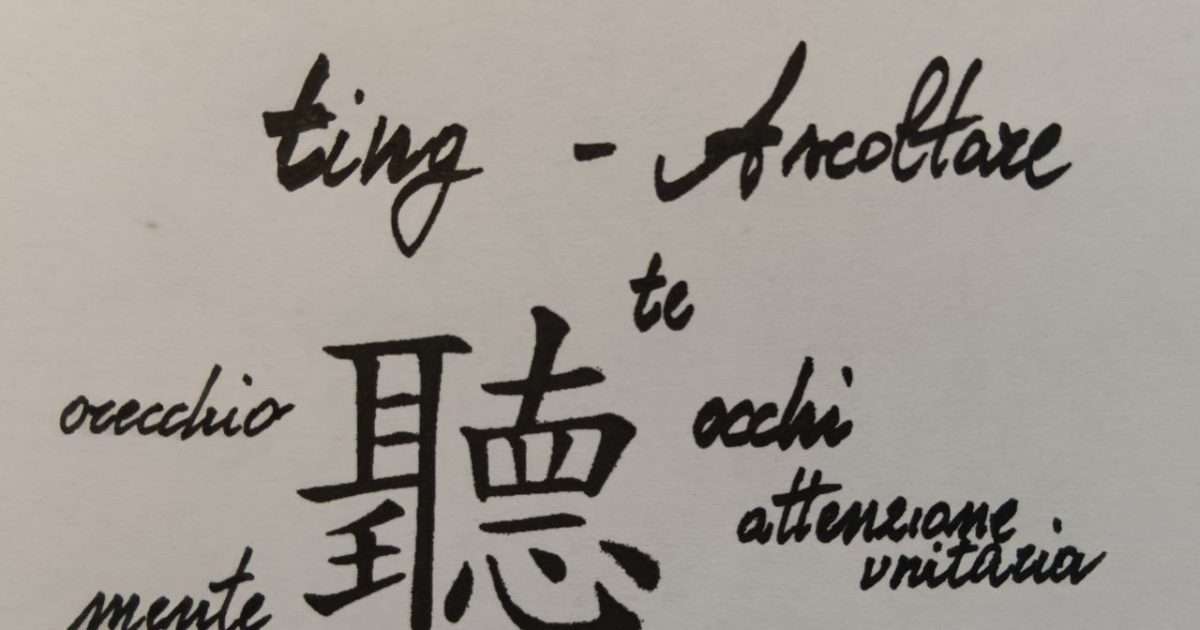 ting - Ascoltare
te
聽
orecchio
occhi
attenzione
unitaria
mente